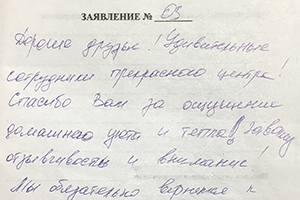 ЗАЯВЛЕНИЕ № 03
Дорогие друзья! Удивительные
сотрудники прекрасного центра!
Спасибо Вам за ощущение
домашнего уюта и тепла!! Заботу
отзывчивость и внимание!
Мы обязательно вернемся к